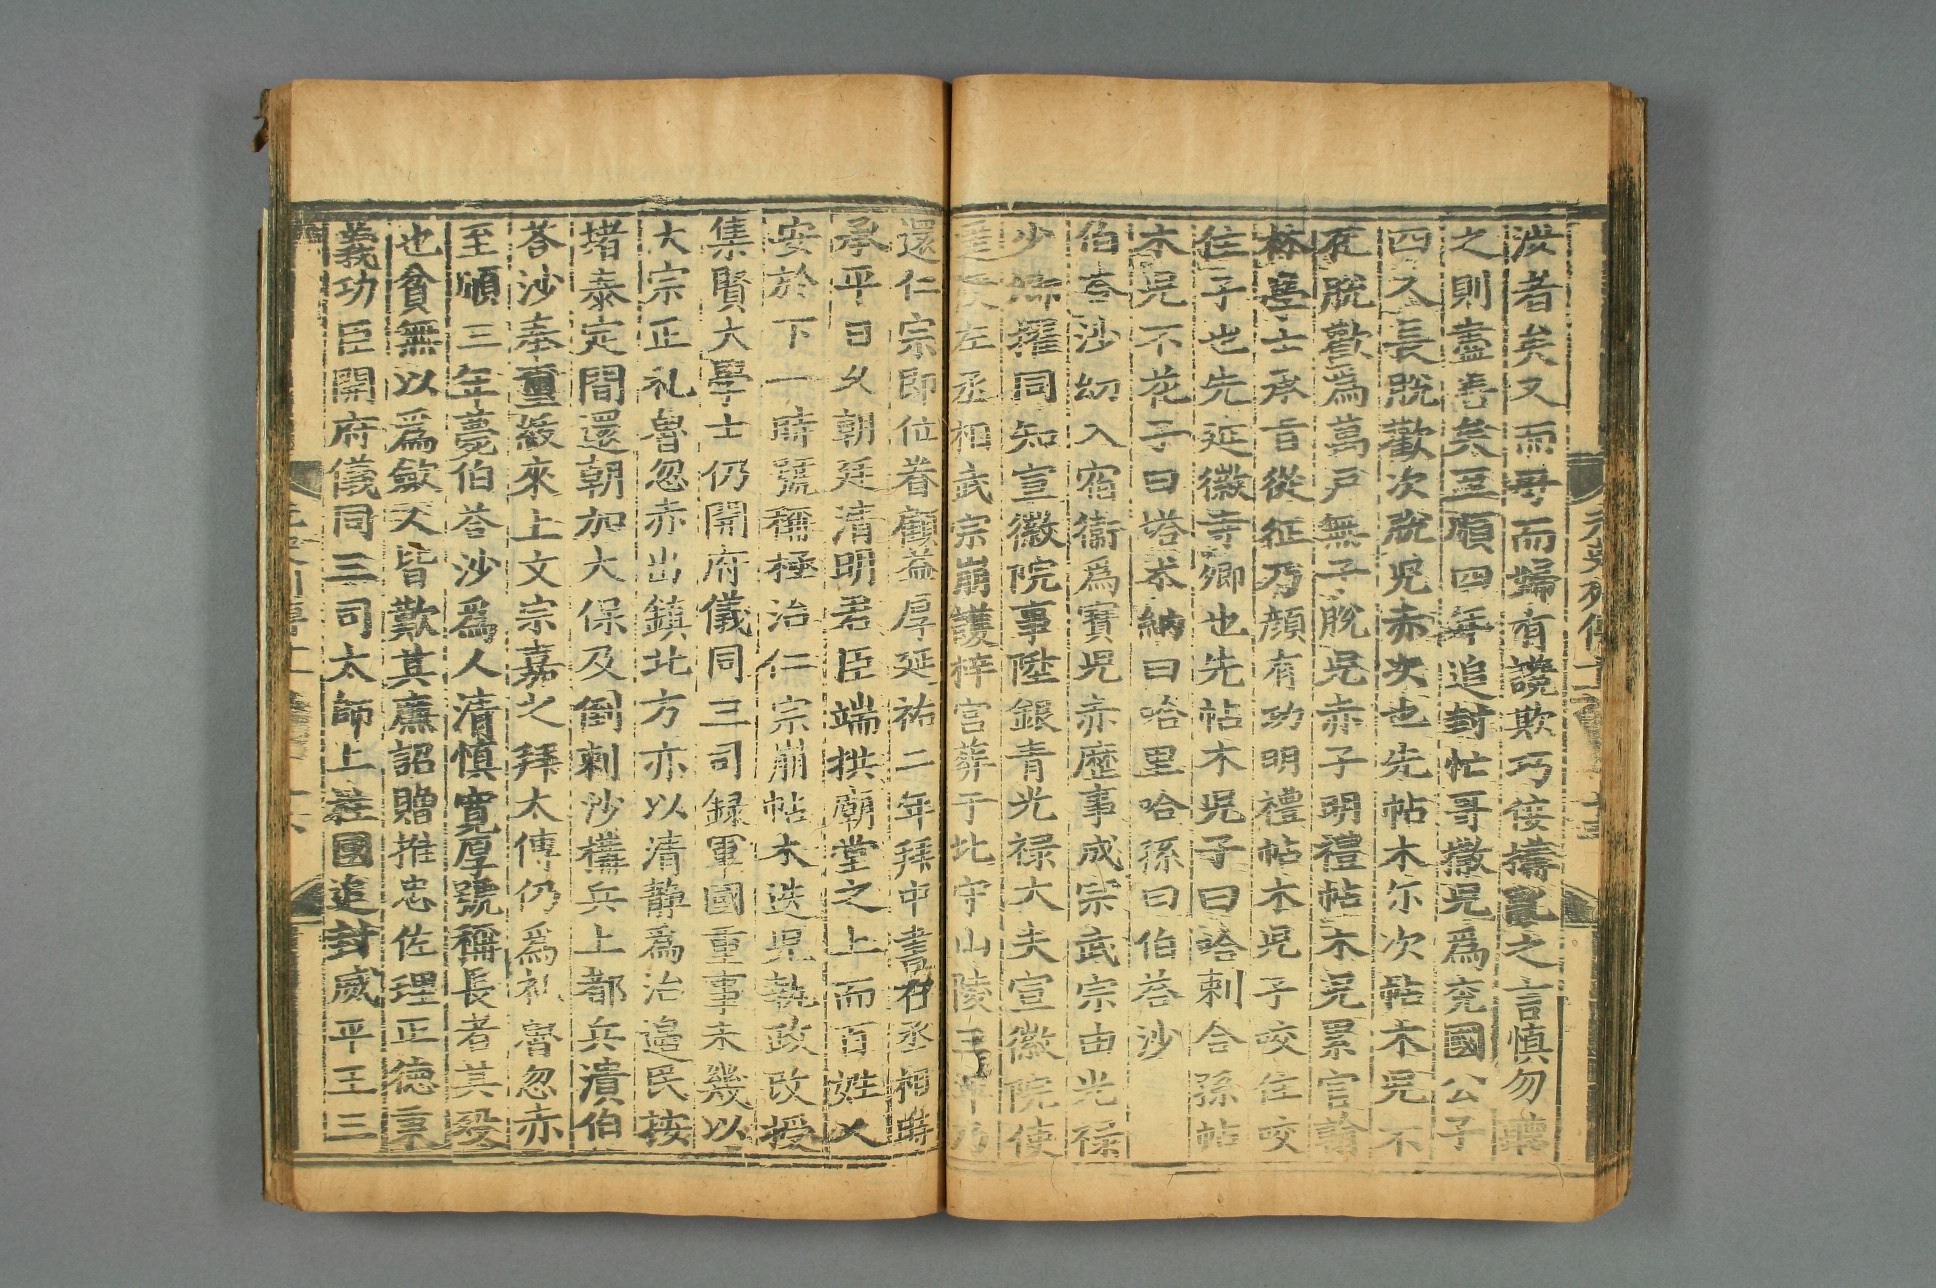 洪者矣又而毋而歸有讒欺巧佞擣亂之言慎勿聽
之則盡善矣至順四年追封忙哥撒兒為兖國公子
四人長脫歡次脫兒赤次也先帖木尔次帖木兒不
花脫歡為萬戶無子脫兒赤子明禮帖木兒累官翰
林學士承旨從征乃顏有功明禮帖木兒子咬住咬
住子也先延徽寺卿也先帖木兒子曰哈剌合孫帖
木兒不花子曰塔木納曰哈里哈孫曰伯荅沙
伯荅沙幼入宿衛為寶兒赤歷事成宗武宗由光祿
少卿擢同知宣徽院事陞銀青光祿大夫宣徽院使
遙授左丞相武宗崩護梓宮葬于北守山陵三年乃
還仁宗即位眷顧益厚延祐二年拜中書右丞相時
承平日久朝廷清明君臣端拱廟堂之上而百姓乂
安於下一時號稱極治仁宗崩帖木迭兒執政改授
集賢大學士仍開府儀同三司録軍國重事未幾以
大宗正札魯忽赤出鎮北方亦以清靜為治邉民按
堵泰定間還朝加太保及倒剌沙搆兵上都兵潰伯
荅沙奉璽綬來上文宗嘉之拜太傅仍為札魯忽赤
至順三年薨伯荅沙為人清慎寬厚號稱長者其殁
也貧無以為歛人皆歎其廉詔贈推忠佐理正德秉
義功臣開府儀同三司太師上柱國追封威平王三
元史列傳十一